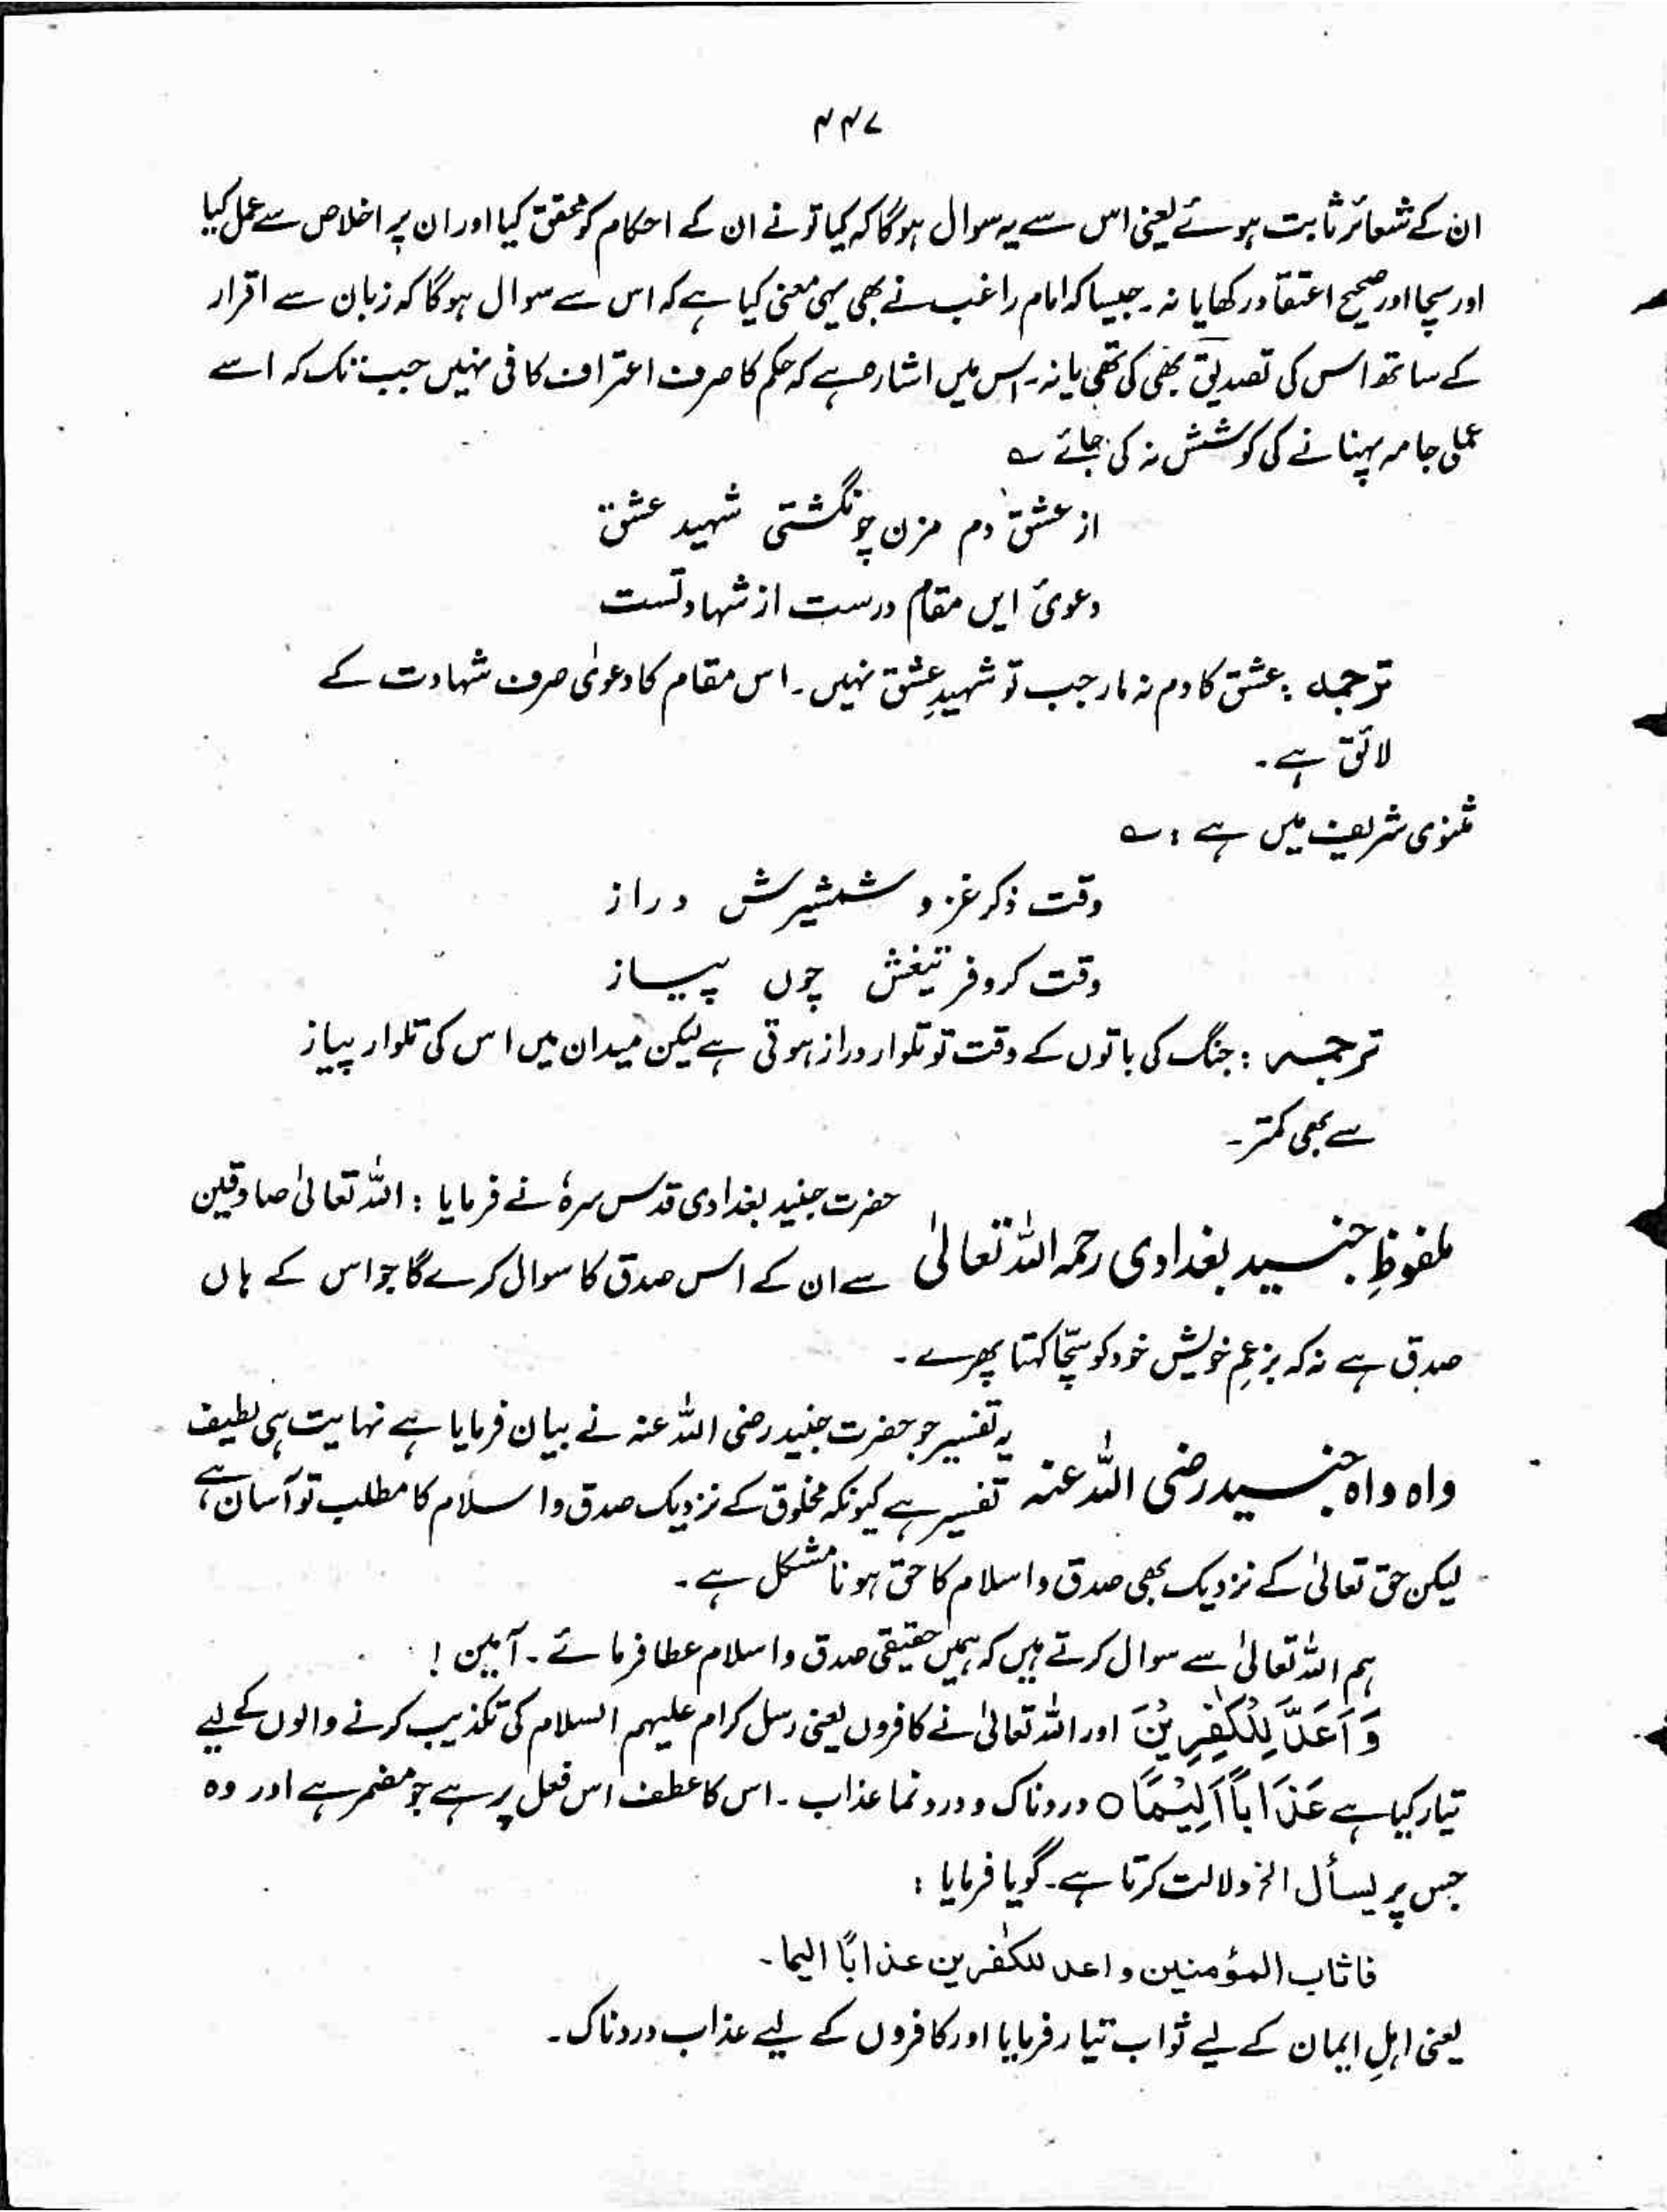 ۴۴۷
ان کے شعائر ثابت ہوئے یعنی اس سے یہ سوال ہوگا کہ کیا تو نے ان کے احکام کو محقق کیا اور ان پر اخلاص سے عمل کیا
اور سچا اور صحیح اعتقاد رکھا یا نہ۔ جیسا کہ امام راغب نے بھی یہی معنی کیا ہے کہ اس سے سوال ہوگا کہ زبان سے اقرار
کے ساتھ اس کی تصدیق بھی کی تھی یا نہ۔ اس میں اشارہ ہے کہ حکم کا صرف اعتراف کافی نہیں جب تک کہ اسے
عملی جامہ پہنانے کی کوشش نہ کی جائے ؎
از عشق دم مزن چو نگشتی شہید عشق
دعویٰ ایں مقام درست از شہادتست
ترجمہ : عشق کا دم نہ مار جب تو شہیدِ عشق نہیں۔ اس مقام کا دعویٰ صرف شہادت کے
لائق ہے۔
مثنوی شریف میں ہے : ؎
وقت ذکر غزو شمشیرش دراز
وقت کروفر تیغش چوں پیاز
ترجمہ : جنگ کی باتوں کے وقت تو تلوار دراز ہوتی ہے لیکن میدان میں اس کی تلوار پیاز
سے بھی کمتر۔
ملفوظِ جنید بغدادی رحمہ اللہ تعالیٰ حضرت جنید بغدادی قدس سرہٗ نے فرمایا : اللہ تعالیٰ صادقین
سے ان کے اس صدق کا سوال کرے گا جو اس کے ہاں
صدق ہے نہ کہ بزعمِ خویش خود کو سچّا کہتا پھرے۔
واہ واہ جنید رضی اللہ عنہ یہ تفسیر جو حضرت جنید رضی اللہ عنہ نے بیان فرمایا ہے نہایت ہی لطیف
تفسیر ہے کیونکہ مخلوق کے نزدیک صدق و اسلام کا مطلب تو آسان ہے،
لیکن حق تعالیٰ کے نزدیک بھی صدق و اسلام کا حق ہونا مشکل ہے۔
ہم اللہ تعالیٰ سے سوال کرتے ہیں کہ ہمیں حقیقی صدق و اسلام عطا فرمائے۔ آمین !
وَ اَعَدَّ لِلْكٰفِرِيْنَ اور اللہ تعالیٰ نے کافروں یعنی رسل کرام علیہم السلام کی تکذیب کرنے والوں کے لیے
تیار کیا ہے عَذَابًا اَلِيْمًا ○ دردناک و درد نما عذاب۔ اس کا عطف اس فعل پر ہے جو مضمر ہے اور وہ
جس پر یسأل الخ دلالت کرتا ہے۔ گویا فرمایا :
فاثاب المؤمنین و اعد للکٰفرین عذابًا الیما۔
یعنی اہلِ ایمان کے لیے ثواب تیار فرمایا اور کافروں کے لیے عذاب دردناک۔